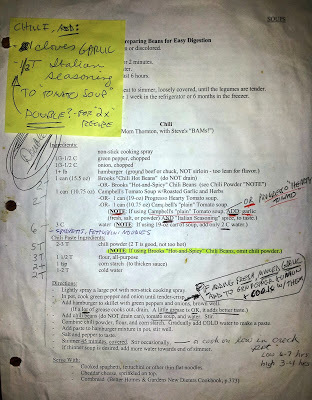 SOUPS
CHILI, ADD:
cloves GARLIC
- 1/2 T Italian
Seasoning
TO TOMATO SOUP
DOUBLE? - FOR "2x"
RECIPE
Preparing Beans for Easy Digestion
or discolored.
2 minutes.
6 hours.
to simmer, loosely covered, until the legumes are tender.
1 week in the refrigerator or 6 months in the freezer.
Chili
(Mom Thornton, with Steve's "BAMs!")
Ingredients:
non-stick cooking spray
1/2-1/2 C green pepper, chopped
1/2-1/2 C onion, chopped
1+ lb hamburger (ground beef or chuck, NOT sirloin - too lean for flavor.)
1 can (15.5 oz) Brooks "Chili Hot Beans" (do NOT drain)
-OR- Brooks "Hot-and-Spicy" Chili Beans (see Chili Powder "NOTE")
1 can (10.75 oz) Campbell's Tomato Soup w/Roasted Garlic and Herbs
-OR- 1 can (19-oz) Progresso Hearty Tomato soup.
-OR- 1 can (10.75 oz) Campbell's "plain" Tomato soup.
(NOTE: If using Campbell's "plain" Tomato soup, ADD garlic
(fresh, salt, or powder) AND "Italian Seasoning" spice, to taste.)
- OR PROGRESSO HEARTY
TOMATO
3 C water (NOTE: If using 19-oz can of soup, add only 2 C water.)
Chili Paste Ingredients:
2-3 T chili powder (2 T is good, not too hot)
(NOTE: If using Brooks "Hot-and-Spicy" Chili Beans, omit chili powder.)
1 1/2 T flour, all-purpose
1 tsp corn starch (to thicken sauce)
1-2 T cold water
5T
3T
2T
Directions:
Lightly spray a large pot with non-stick cooking spray.
In pot, cook green pepper and onion until tender
Add hamburger to skillet with green peppers and onions, brown well.
(If a lot of grease cooks out, drain. A little grease is OK, it adds better taste.)
Add chili beans (do NOT drain can), tomato soup, and water. Stir.
Combine chili powder, flour, and corn starch. Gradually add COLD water to make a paste.
Add paste to hamburger mixture in pot, stir well.
Salt and pepper to taste.
Simmer 45 minutes, covered. Stir occasionally.
If thinner soup is desired, add more water towards end of simmer.
IF ADDING FRESH MINCED GARLIC
ADD TO RED PEPPERS & ONION
& COOK w/ THEM
a cook on low in crock
Pot
Low 6-7 hrs
high 3-4 hrs
Serve With:
Cooked spaghetti, fettuccine or other (not flat) noodles.
Cheddar cheese, sprinkled on top.
Cornbread (Better Homes & Gardens New Dieters Cookbook, p.373)